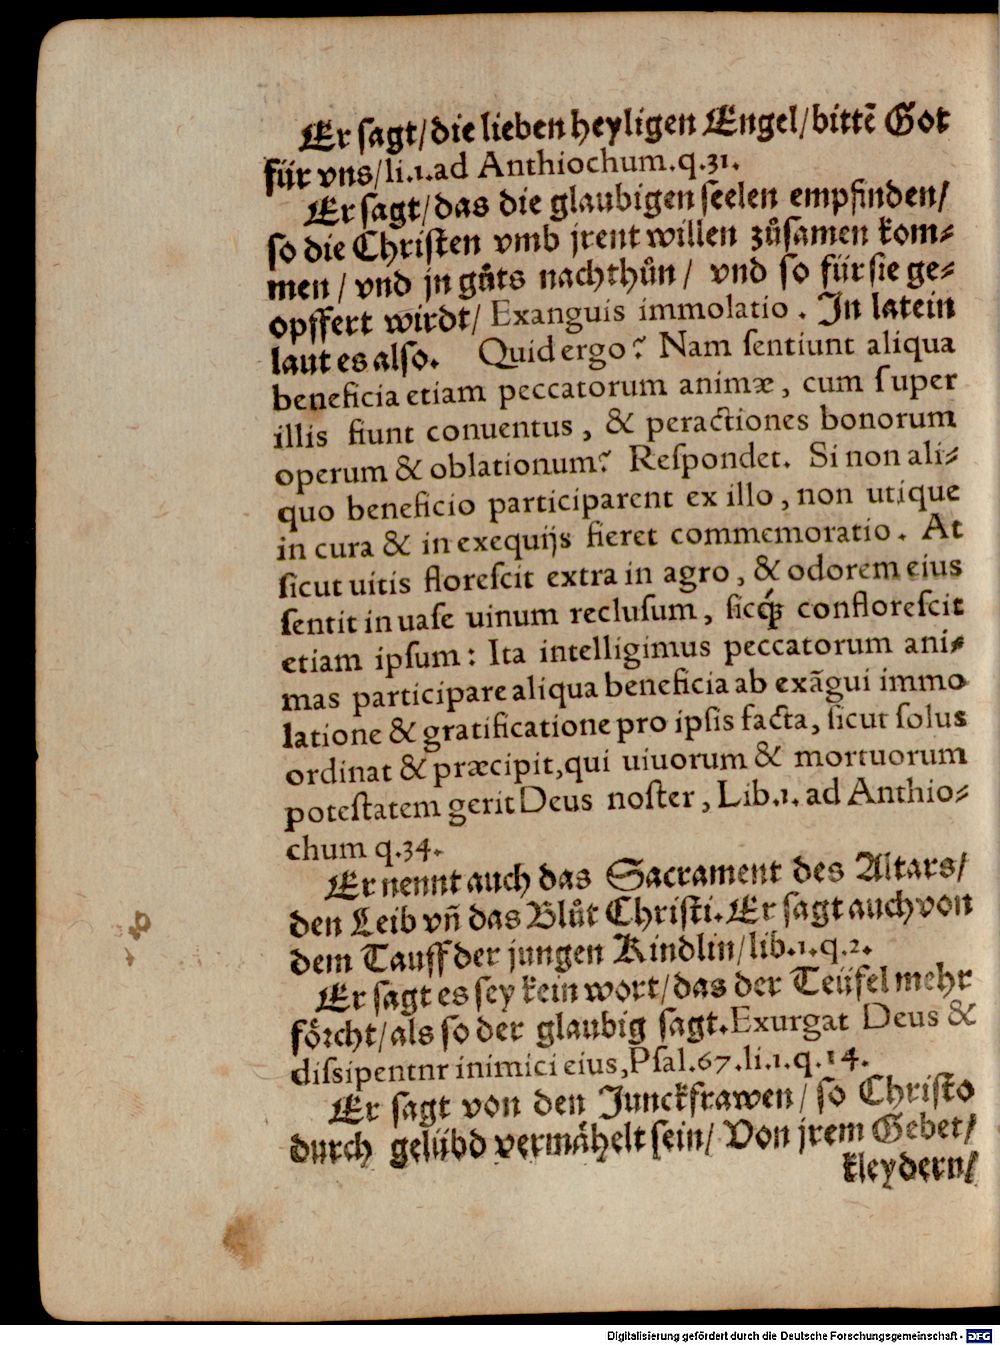 Er sagt/die lieben heyligen Engel/bittẽ Got
für vns/li.1.ad Anthiochum.q.31.
Er sagt/das die glaubigen seelen empfinden/
so die Christen vmb jrent willen zůsamen kom⸗
men / vnd jn gůts nachthůn / vnd so für sie ge⸗
opffert wirdt/ Exanguis immolatio . In latein
laut es also. Quid ergo? Nam sentiunt aliqua
beneficia etiam peccatorum animæ, cum super
illis fiunt conuentus, & peractiones bonorum
operum & oblationum? Respondet. Si non ali⸗
quo beneficio participarent ex illo, non utique
in cura & in exequijs fieret commemoratio. At
sicut uitis florescit extra in agro, & odorem eius
sentit in uase uinum reclusum, sicq́ꝫ conflorescit
etiam ipsum: Ita intelligimus peccatorum ani⸗
mas participare aliqua beneficia ab exãgui immo
latione & gratificatione pro ipsis facta, sicut solus
ordinat & præcipit, qui uiuorum & mortuorum
potestatem gerit Deus noster, Lib.1. ad Anthio⸗
chum q.34.
Er nennt auch das Sacrament des Altars/
den Leib vñ das Blůt Christi. Er sagt auch von
dem Tauff der jungen Kindlin/lib.1.q.2.
Er sagt es sey kein wort/das der Teüfel mehr
foͤrcht/als so der glaubig sagt.Exurgat Deus &
dissipentnr inimici eius, Psal.67.li.1.q.14.
Er sagt von den Junckfrawen / so Christo
durch gelübd vermaͤhelt sein/ Von jrem Gebet/
kleydern/
Digitalisierung gefördert durch die Deutsche Forschungsgemeinschaft - DFG